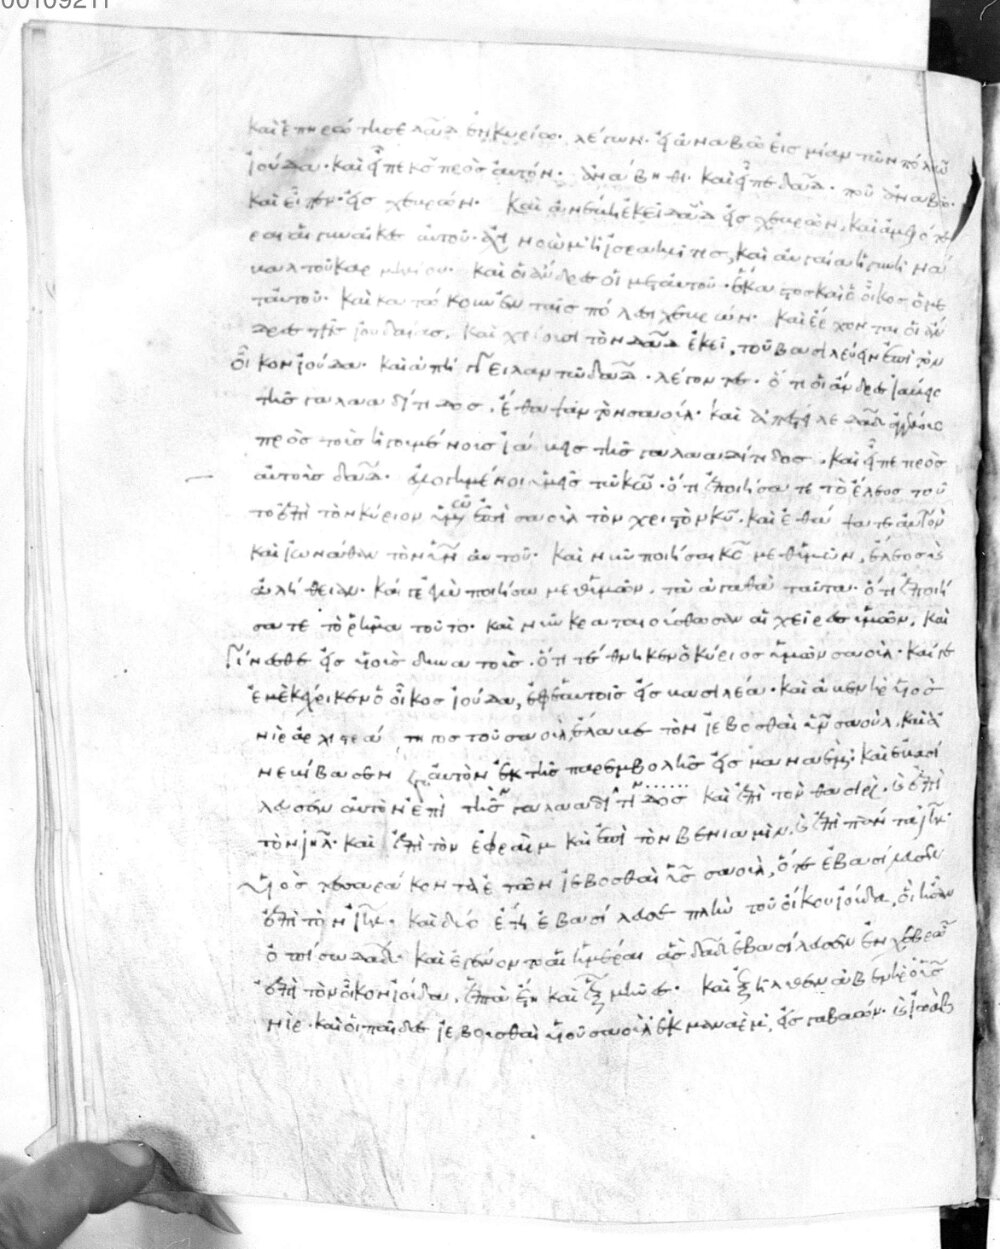 00109211
καὶ ἐπηρώτησε δᾱδ ἐν κυρίω· λέγων· εἰ ἀναβῶ εἰς μίαν τῶν πόλεων
ἰούδα· καὶ εἶπε κ̄ς πρὸς αὐτόν· ἀνάβηθι· καὶ εἶπε δᾱδ· ποῦ ἀναβῶ·
καὶ εἶπεν· εἰς χευρών· καὶ ἀνέβη ἐκεῖ δᾱδ εἰς χευρών, καὶ ἀμφότε
ραι αἱ γυναῖκες αὐτοῦ· ἡ ἰσραηλίτης, καὶ ἡ γυνὴ να
καὶ οἱ ἄνδρες οἱ μετ αὐτοῦ· ἕκαστος καὶ ὁ οἶκος
αὐτοῦ· καὶ ἐν ταῖς πόλεσι χευρών· καὶ ἔρχονται οἱ ἄν
δρες τῆς ἰουδαίας, καὶ χρίουσι τὸν δᾱδ ἐκεῖ, τοῦ βασιλεύειν ἐπὶ τὸν
οἶκον ἰούδα· καὶ ἀπήγγειλαν τῶ δᾱδ· λέγοντες· ὅτι οἱ ἄνδρες
τῆς γαλααδίτιδος, ἔθαψαν τὸν σαούλ· καὶ ἀπέστειλε δᾱδ ἀγγέλους
πρὸς τοὺς ἡγουμένους τῆς γαλααδίτιδος, καὶ εἶπε πρὸς
αὐτοὺς δᾱδ· εὐλογημένοι ὑμεῖς τῶ κ̄ω· ὅτι ἐποιήσατε τὸ ἔλεος τοῦ
το ἐπὶ τὸν κύριον ὑμῶν ἐπὶ σαοὺλ τὸν χριστὸν κ̄υ· καὶ ἐθάψατε αὐτὸν
καὶ ἰωνάθαν τὸν ῡν αὐτοῦ· καὶ νῦν ποιήσαι κ̄ς μεθ ὑμῶν, ἔλεος καὶ
ἀλήθειαν· καί γε ἐγὼ ποιήσω μεθ ὑμῶν, τὰ ἀγαθὰ ταῦτα· ὅτι ἐποιή
σατε τὸ ῥῆμα τοῦτο· καὶ νῦν κραταιούσθωσαν αἱ χεῖρες ὑμῶν, καὶ
γίνεσθε εἰς υἱοὺς δυνατούς· ὅτι τέθνηκεν ὁ κύριος ὑμῶν σαούλ· καί γε
ἐμὲ κέχρικεν ὁ οἶκος ἰούδα, ἐφ ἑαυτοὺς εἰς βασιλέα· καὶ ἀβενὴρ υἱὸς
νὶρ τοῦ σαούλ, ἔλαβε τὸν ἰεβοσθαὶ ῡν σαούλ, καὶ ἀ
νεβίβασεν αὐτὸν ἐκ τῆς παρεμβολῆς εἰς καὶ ἐβασί
λευσεν αὐτὸν ἐπὶ τῆς γαλααδίτιδος καὶ ἐπὶ τὸν θασιρί, καὶ ἐπὶ
τὸν ἰη̄λ· καὶ ἐπὶ τὸν ἐφραὶμ καὶ ἐπὶ τὸν βενιαμίν, καὶ ἐπὶ πάντα ἰη̄λ·
υἱὸς τεσσαράκοντα ἐτῶν ἰεβοσθαὶ ῡς σαούλ, ὅτε ἐβασίλευσεν
ἐπὶ τὸν ἰη̄λ· καὶ δύο ἔτη ἐβασίλευσε πλὴν τοῦ οἴκου ἰούδα, οἳ ἦσαν
ὀπίσω δᾱδ· καὶ ἐγένοντο αἱ ἡμέραι ἃς δᾱδ ἐβασίλευσεν ἐν χεβρὼν
ἐπὶ τὸν οἶκον ἰούδα, ἑπτὰ ἔτη καὶ ἓξ μῆνας· καὶ ἐξῆλθεν ἀβενὴρ ὁ ῡς
νίρ· καὶ οἱ παῖδες ἰεβοσθαὶ υἱοῦ σαοὺλ ἐκ μαναέμ, εἰς γαβαών· καὶ ἰωὰβ